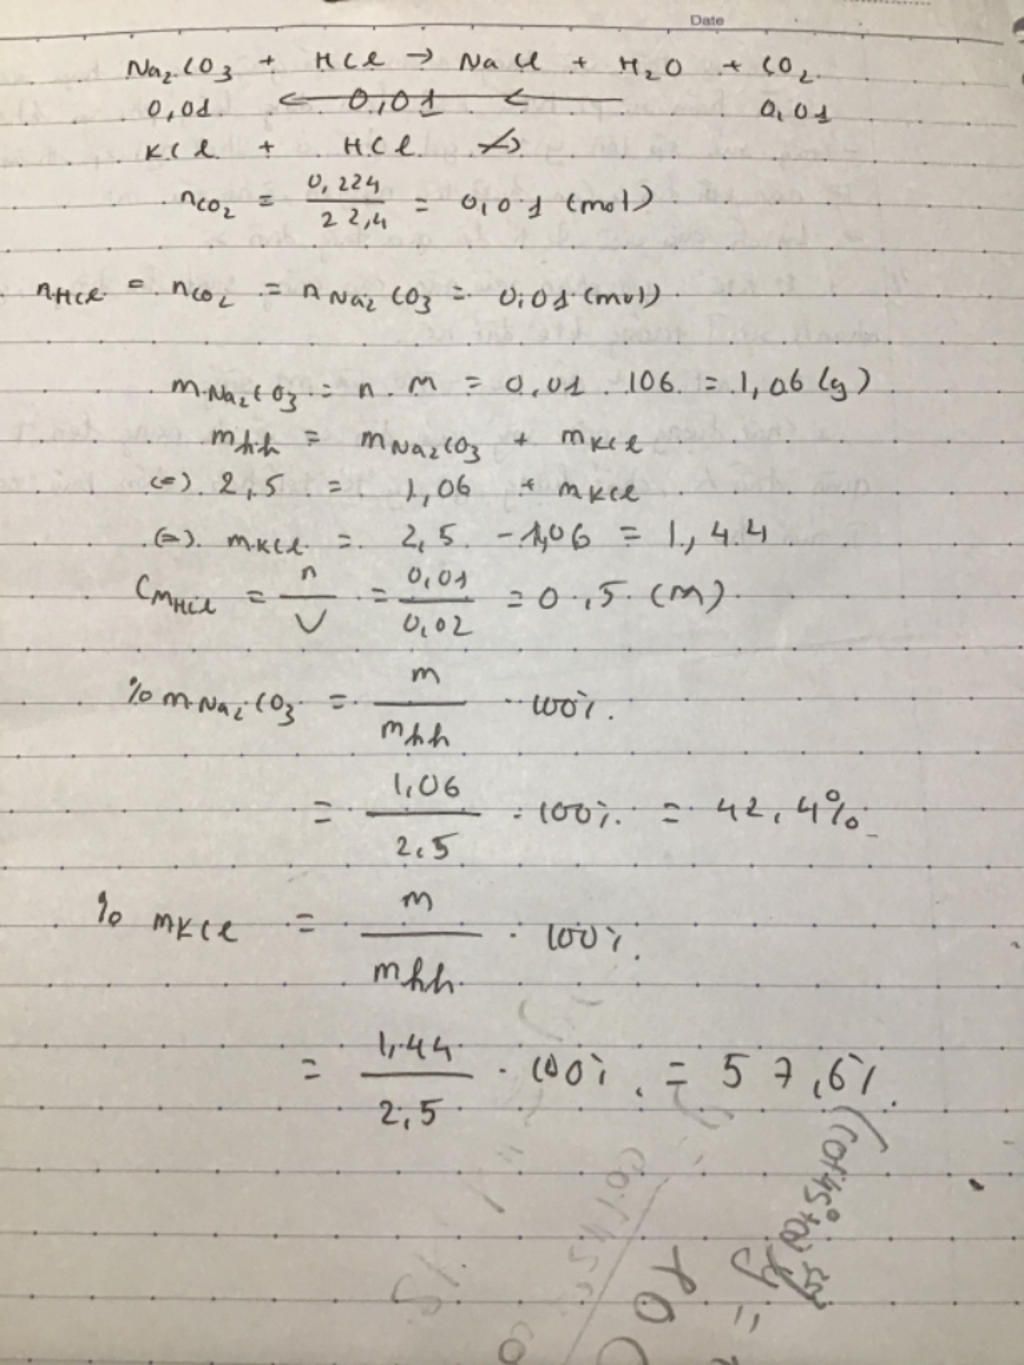 Date
Na₂CO₃ + HCl → NaCl + H₂O + CO₂
0,01 ← 0,01 ← 0,01
KCl + HCl ↛
nCO₂ = 0,224 / 22,4 = 0,01 (mol)
nHCl = nCO₂ = nNa₂CO₃ = 0,01 (mol)
mNa₂CO₃ = n . M = 0,01 . 106 = 1,06 (g)
mhh = mNa₂CO₃ + mKCl
(=) 2,5 = 1,06 + mKCl
(=) mKCl = 2,5 - 1,06 = 1,44
CMHCl = n / V = 0,01 / 0,02 = 0,5 (M)
% mNa₂CO₃ = m / mhh . 100%
= 1,06 / 2,5 . 100% = 42,4%
% mKCl = m / mhh . 100%
= 1,44 / 2,5 . 100% = 57,6%